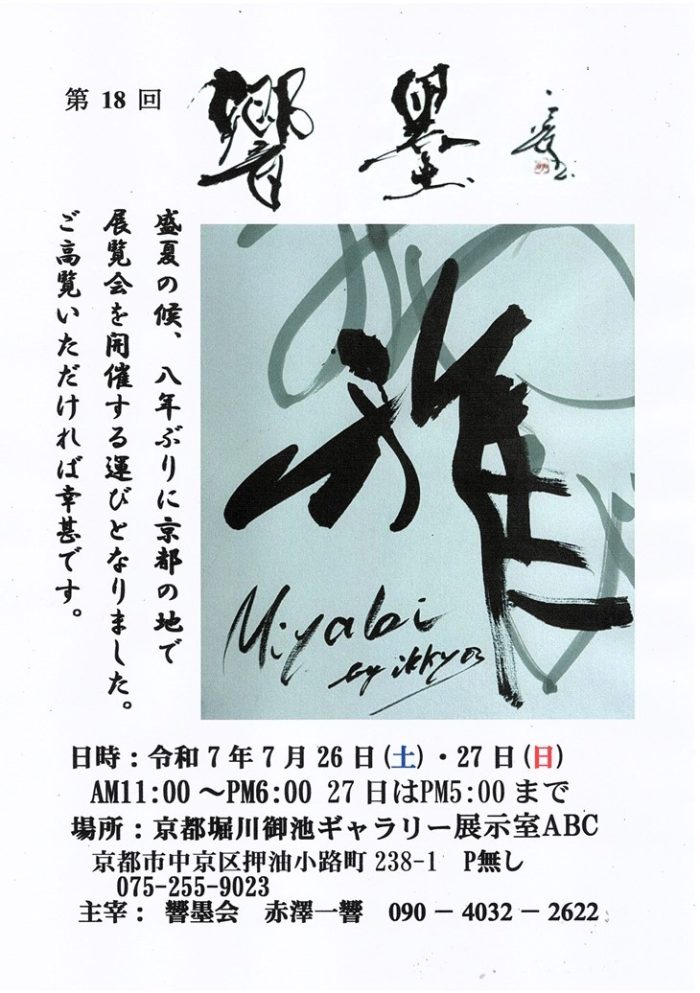 第 18 回
響墨
盛夏の候、八年ぶりに京都の地で
展覧会を開催する運びとなりました。
ご高覧いただければ幸甚です。
雅
Miyabi
by ikkyo
日時：令和７年７月 26 日(土)・27 日(日)
AM11:00 ～PM6:00 27 日はPM5:00 まで
場所：京都堀川御池ギャラリー展示室ABC
京都市中京区押油小路町 238-1 P無し
075-255-9023
主宰： 響墨会 赤澤一響 090－4032－2622